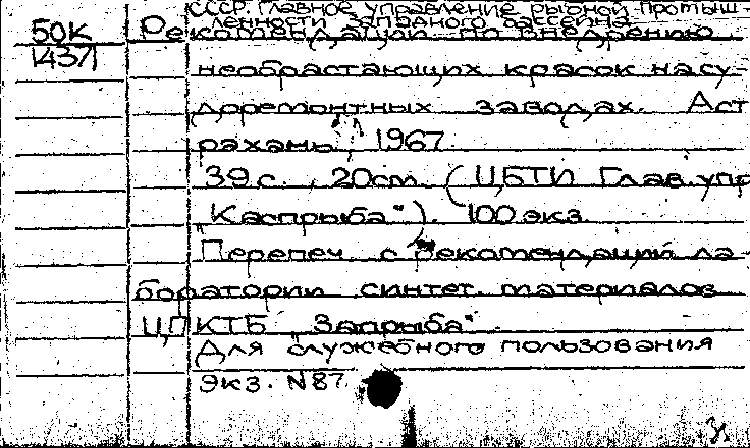 СССР. Главное управление рыбной промыш-
ленности Западного бассейна.
50к Рекомендации по внедрению
1437 необрастающих красок на су-
доремонтных заводах. Аст
рахань, 1967.
39 с., 20 см. (ЦБТИ Глав. упр
"Каспрыба"). 100 экз.
Перепеч. с рекомендаций ла-
боратории синтет. материалов
ЦПКТБ "Запрыба".
Для служебного пользования
Экз. N 87.